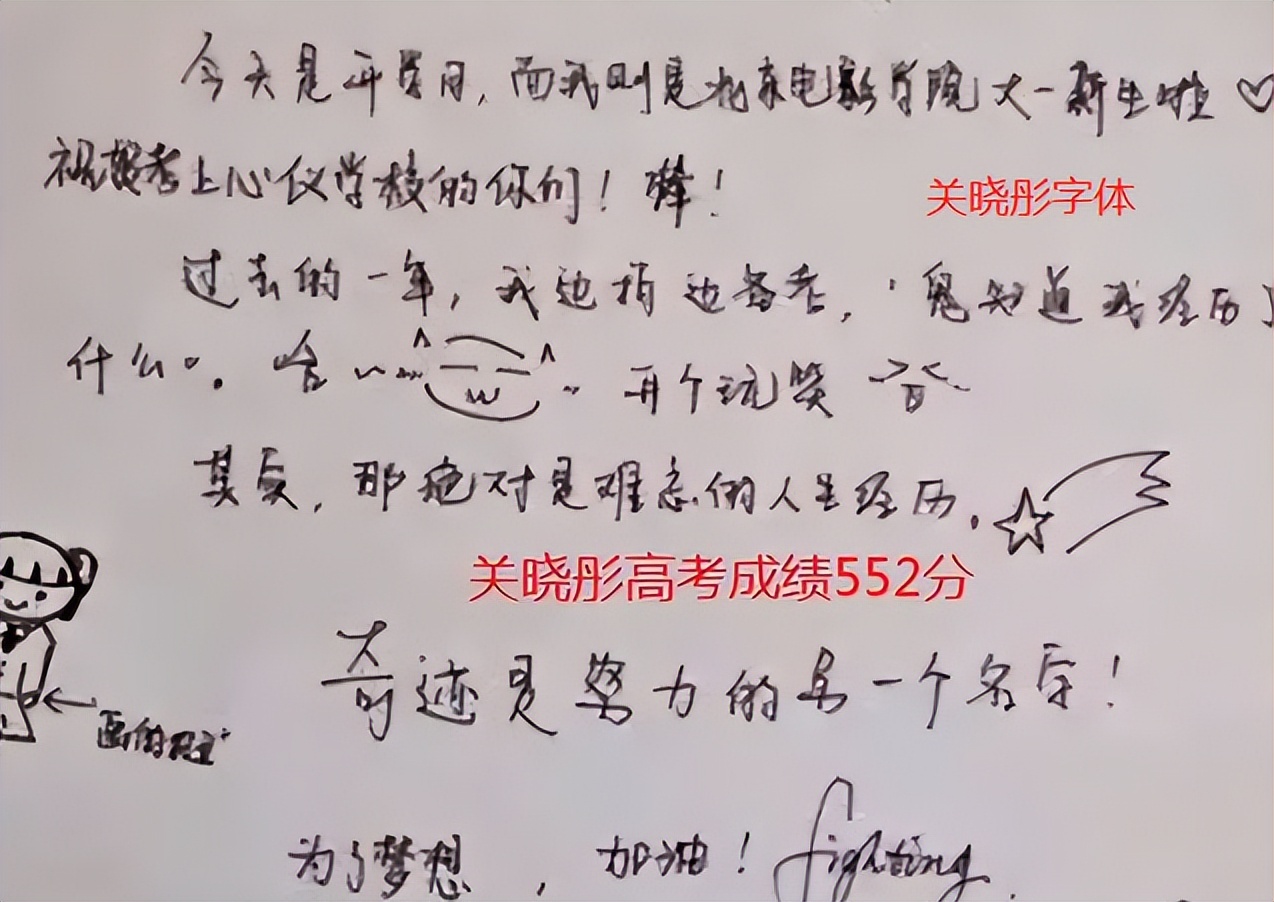 今天是开学日，而我则是北京电影学院大一新生啦♡
祝报考上心仪学校的你们！棒！
关晓彤字体
过去的一年，我边拍边备考，鬼知道我经历了
什么。哈~ 开个玩笑
其实，那绝对是难忘的人生经历。
关晓彤高考成绩552分
奇迹是努力的另一个名字！
画的
为了梦想，加油！fighting.